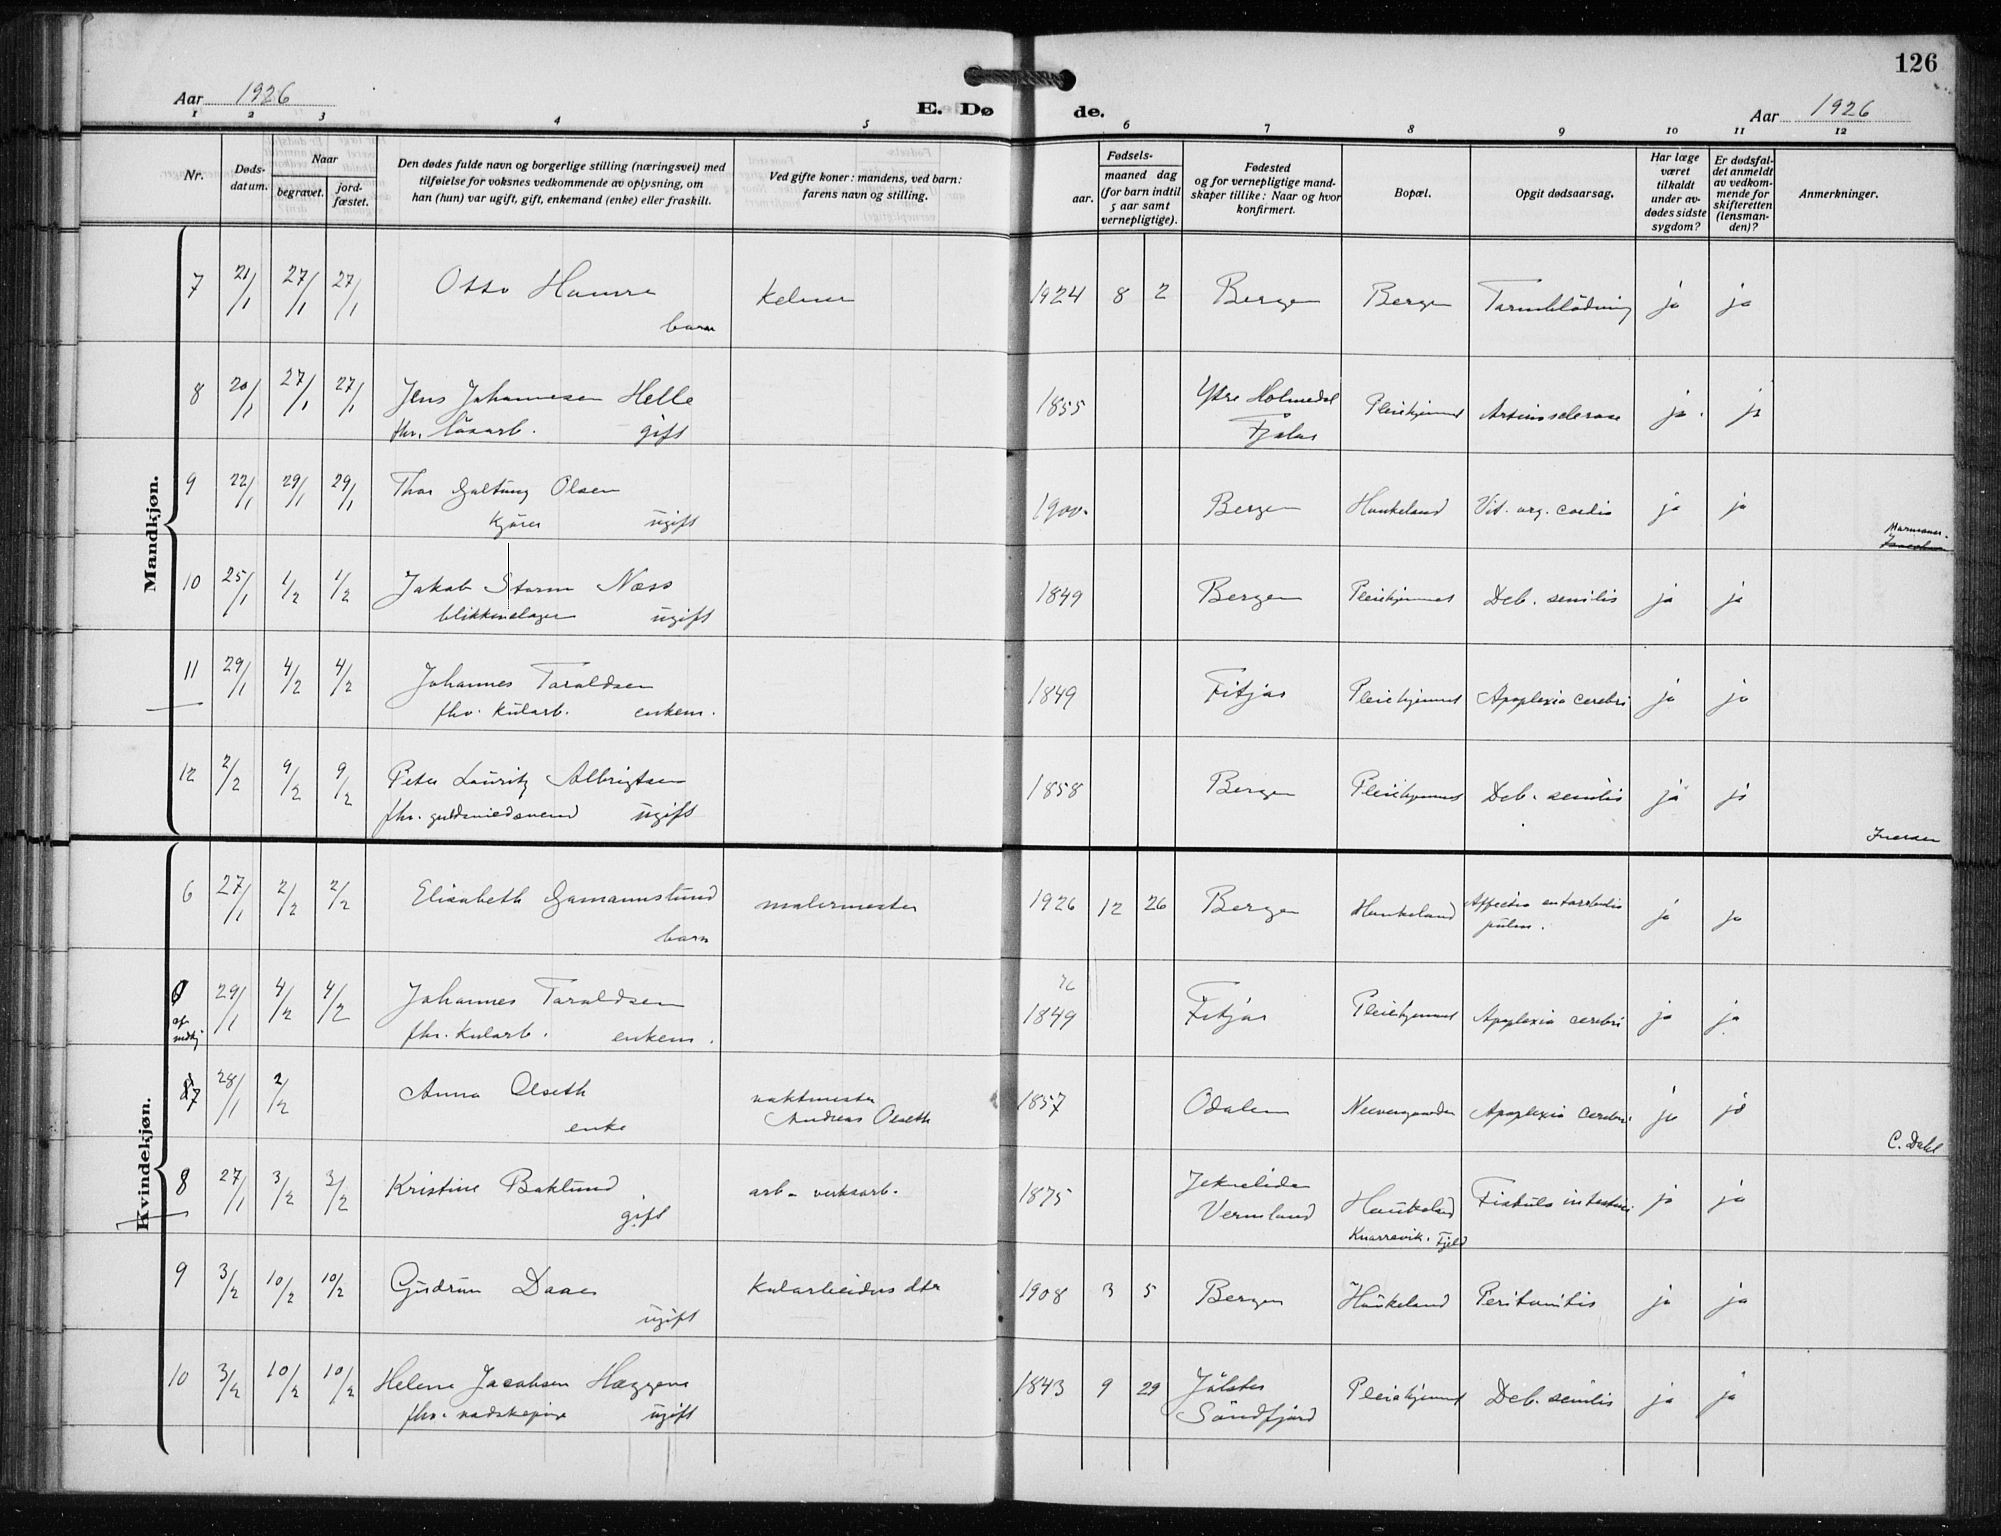 126
Aar 1926
E. Dø de.
Aar 1926
1 2 3 4 5 6 7 8 9 10 11 12
Nr.
Døds-
datum.
Naar
begravet.
jord-
fæstet.
Den dødes fulde navn og borgerlige stilling (næringsvei) med
tilføielse for voksnes vedkommende av oplysning, om
han (hun) var ugift, gift, enkemand (enke) eller fraskilt.
Ved gifte koner: mandens, ved barn:
farens navn og stilling.
Fødsels-
aar.
maaned dag
(for barn indtil
5 aar samt
vernepligtige).
Fødested
og for vernepligtige mand-
skaper tillike: Naar og hvor
konfirmert.
Bopæl.
Opgit dødsaarsag.
Har læge
været
tilkaldt
under av-
dødes sidste
sygdom?
Er dødsfal-
det anmeldt
av vedkom-
mende for
skifteretten
(lensman-
den)?
Anmerkninger.
Mandkjøn.
7 21/1 27/1 27/1 Otto Hamre kelner 1924 8 2 Bergen Bergen Tarmblödning ja ja
barn
8 20/1 27/1 27/1 Jens Johannesen Helle 1855 Ytre Holmedal Pleiehjemmet ja ja
fhv. gift Fjaler
9 22/1 29/1 29/1 Thor Galtung Olsen 1900 Bergen Haukeland Vit. org. cordis ja ja
Kjører ugift
10 25/1 1/2 1/2 Jakob Storm Næss 1849 Bergen Pleiehjemmet Deb. senilis ja ja
blikkenslager ugift
11 29/1 4/2 4/2 Johannes Taraldsen 1849 Fitjar Pleiehjemmet Apoplexia cerebri ja ja
fhv. kularb. enkem.
12 2/2 9/2 9/2 Peter Lauritz Albrigtsen 1858 Bergen Pleiehjemmet Deb. senilis ja ja
fhv. guldsmedsvend ugift
Kvindekjøn.
6 27/1 2/2 2/2 Elisabeth malermester 1926 12 26 Bergen Haukeland ja ja
barn pulm.
29/1 4/2 4/2 Johannes Taraldsen 1849 Fitjar Pleiehjemmet Apoplexia cerebri ja ja
fhv. kularb. enkem.
7 28/1 2/2 Anna Olseth vaktmester 1857 Odalen Neevengaarden Apoplexia cerebri ja ja
enke Andreas Olseth
C. Dahl
8 27/1 3/2 3/2 Kristine Baklund arb. verksarb. 1875 Haukeland Fistula intestini ja ja
gift Vermland
Knarrevik. Fjeld
9 3/2 10/2 10/2 Gudrun Daae kularbeiders dtr 1908 3 5 Bergen Haukeland Peritonitis ja ja
ugift
10 3/2 10/2 10/2 Helene Jacobsen 1843 9 29 Jölster Pleiehjemmet Deb. senilis ja ja
fhv. ugift Söndfjord